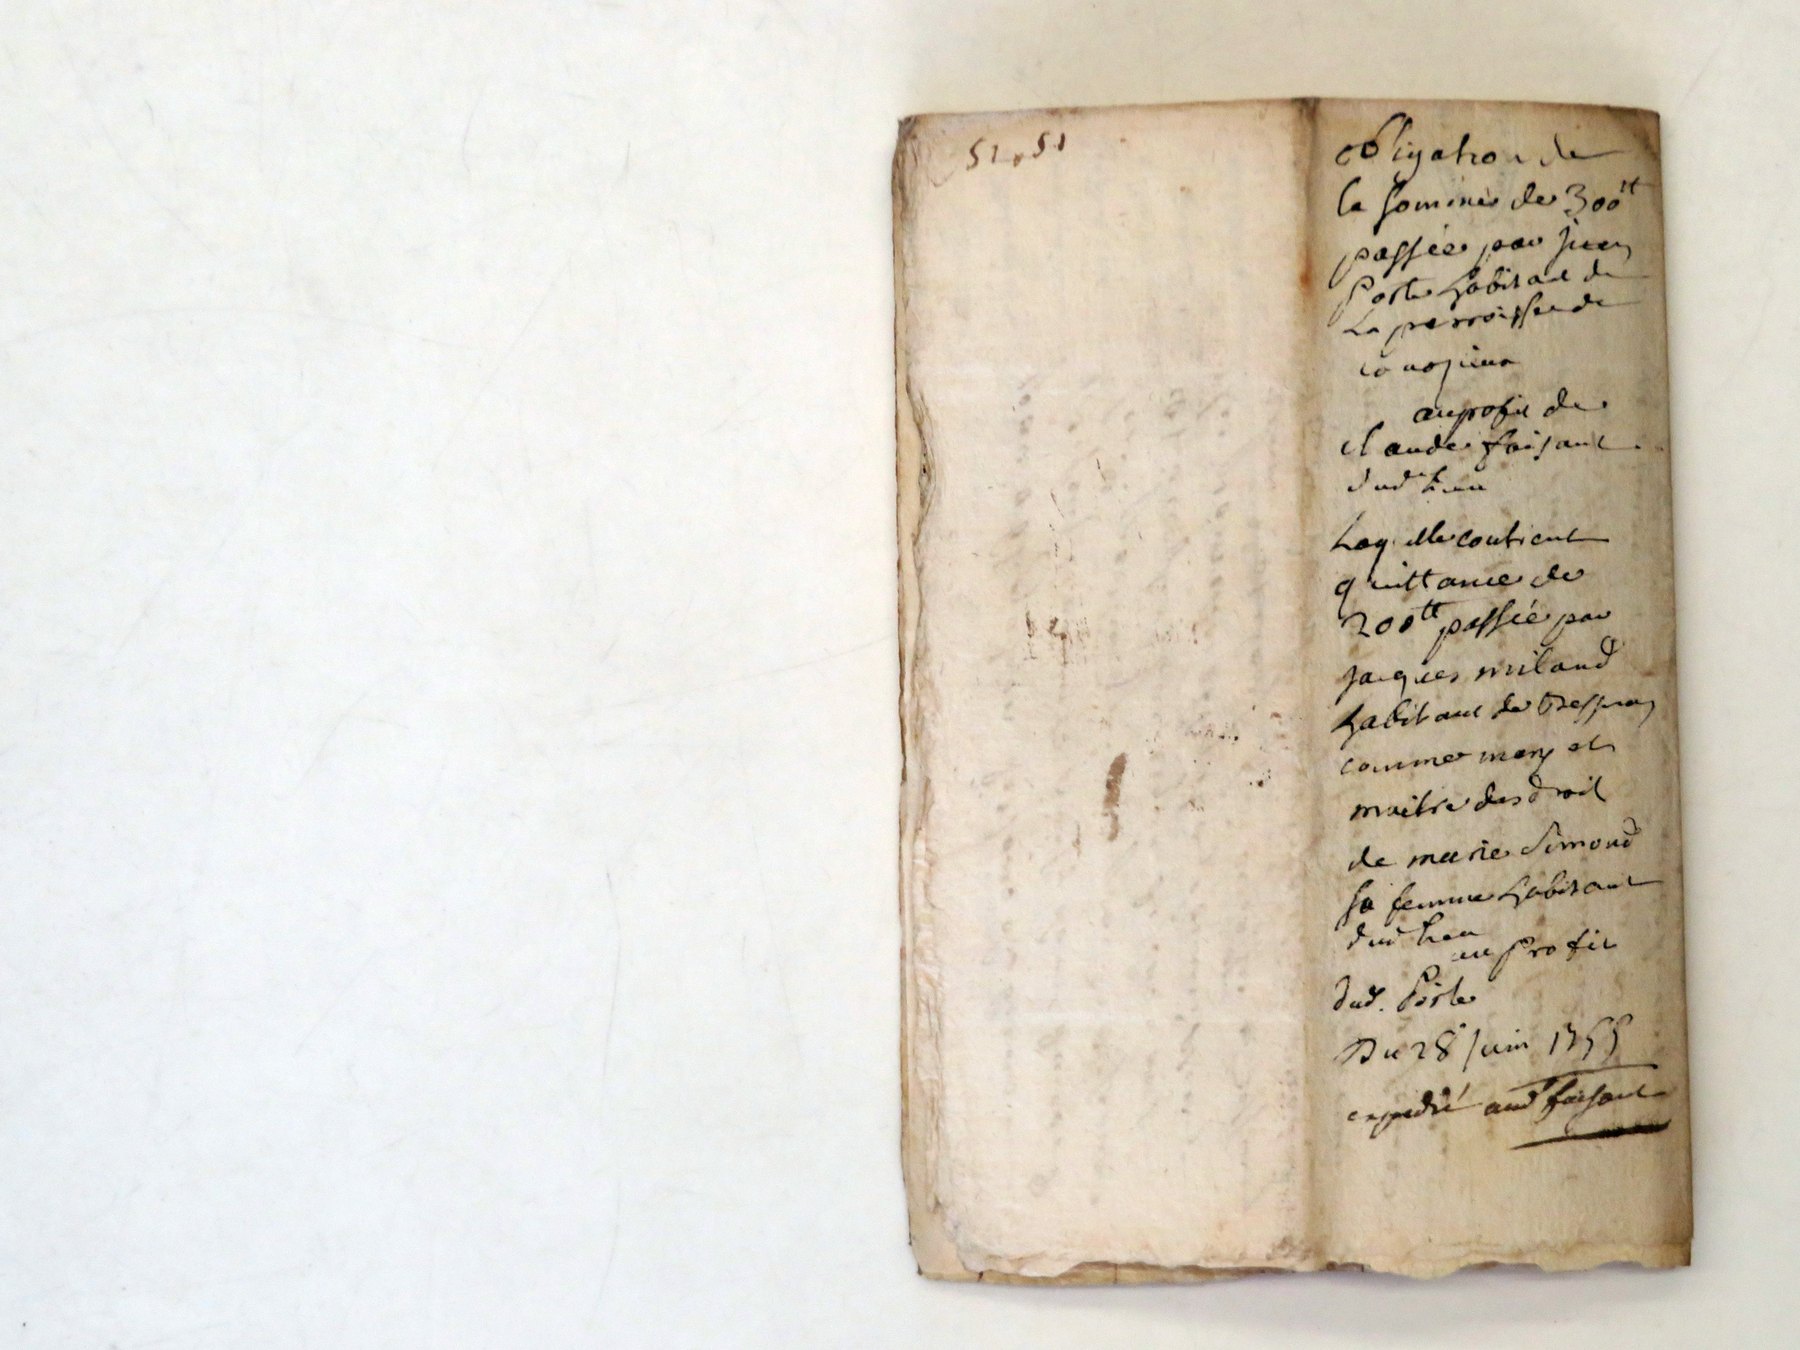 51.51
obligation de
la somme de 300tt
passée par jean
Porte habitant de
La parroisse de
au profit de
claude faisant
dud lieu
Laq.elle contient
quittance de
200tt passée par
jacques miland
habitant de
comme mary et
maitre des droit
de marie Simond
sa femme habitant
dud lieu
au profit
dud. Porte
Du 28 juin 1755
expedié aud faisant